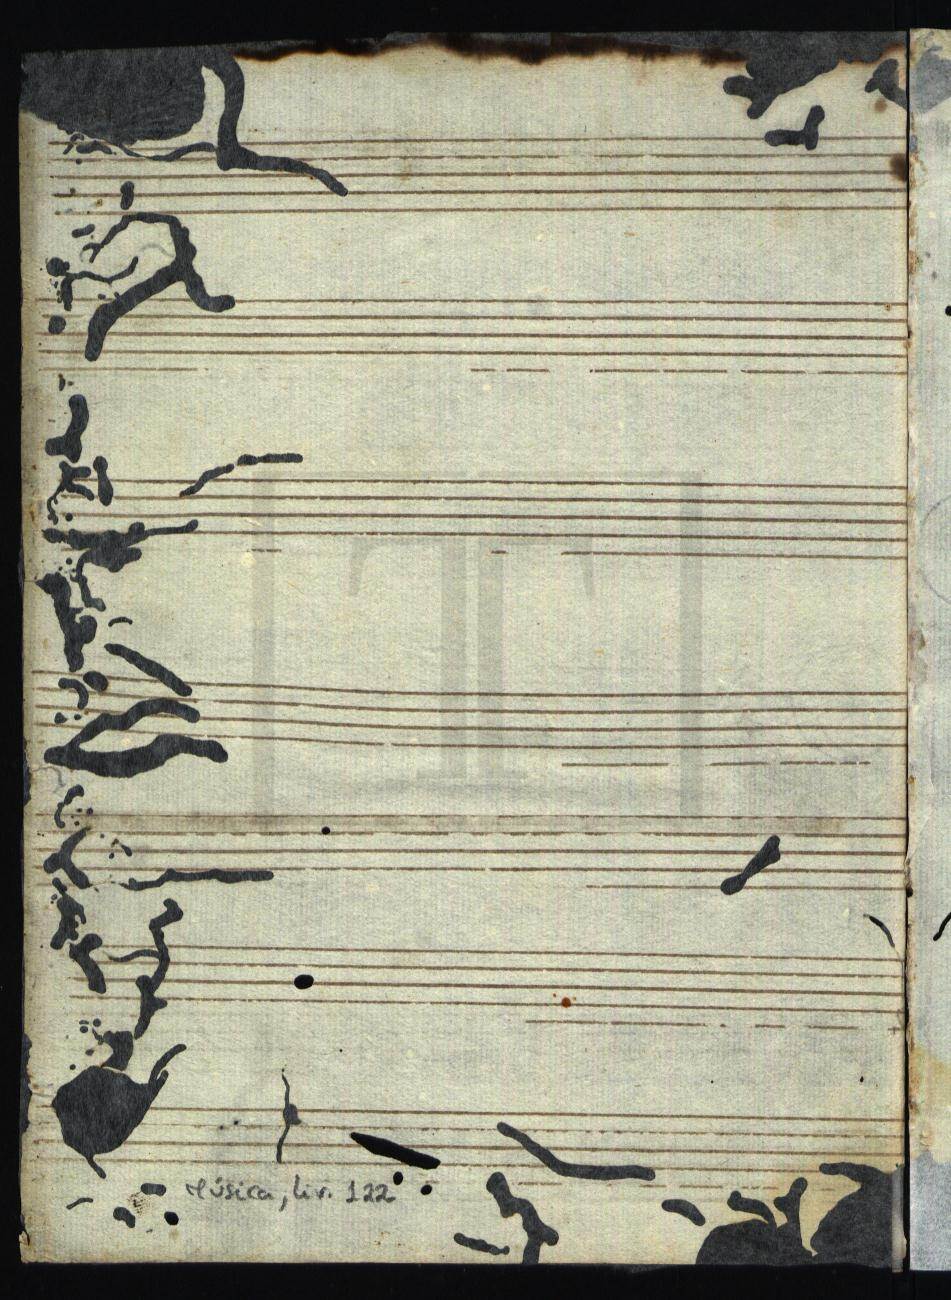 Música, liv. 122